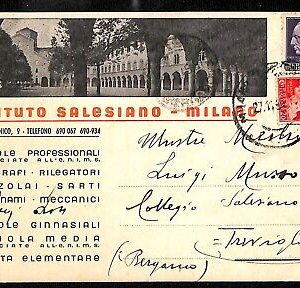 TUTO SALESIANO - MILANO
NICO, 9 - TELEFONO 690 057 690-934
OLE PROFESSIONALI
OCIATE ALL'E.N.I.M.S.
GRAFI - RILEGATORI
ZOLAI - SARTI
GNAMI - MECCANICI
OLE GINNASIALI
UOLA MEDIA
OCIATE ALL'E.N.I.M.S.
TA ELEMENTARE
Illustre Maestro
Luigi Musso
Collegio Salesiano
Treviglio
(Bergamo)